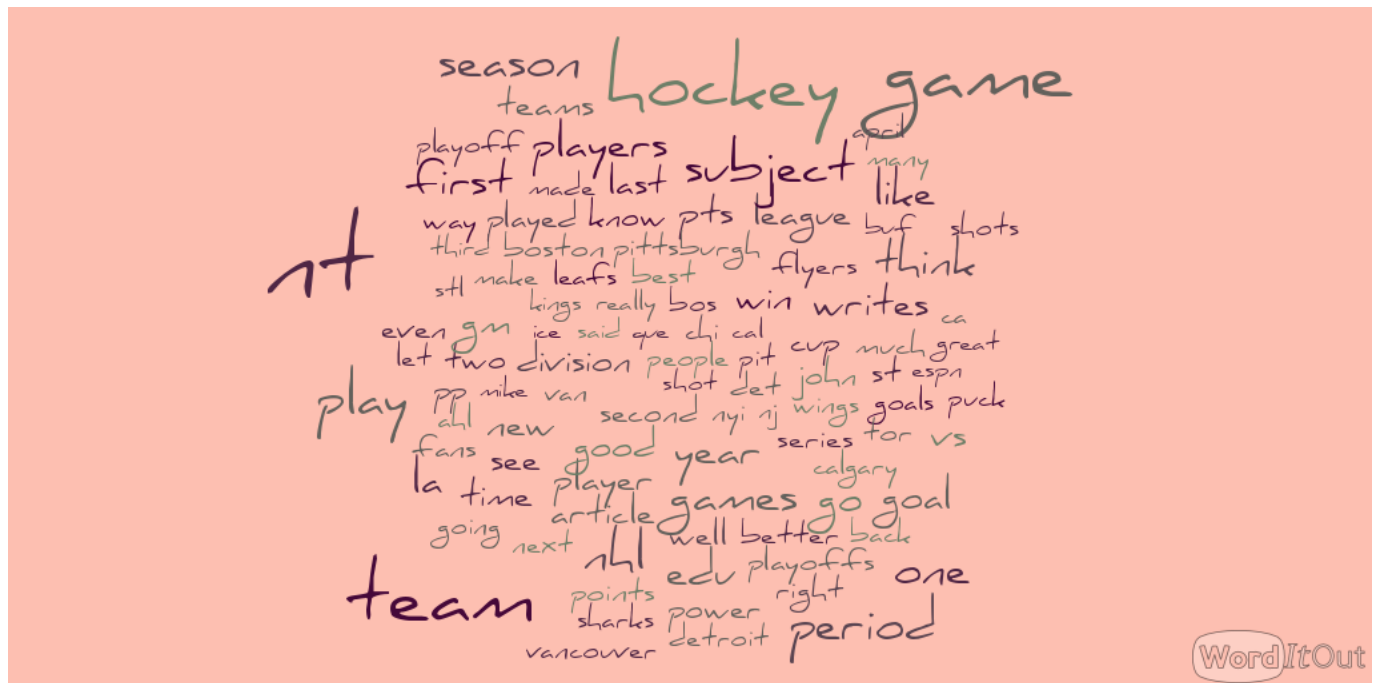 season hockey game
teams
playoff players april
first made last subject many
like
way played know pts league buf shots
third boston pittsburgh
nt flyers think
stl make leafs best
kings really bos win writes
ca
even gm ice said que chi cal
let two division people pit cup much great
play shot det john st espn
pp mike van
ahl new second nyi nj wings goals puck
fans see good year series tor vs
la time player calgary
article games go goal
going next nhl well better back
edu playoffs
team points right one
sharks power period
vancouver detroit
WordItOut